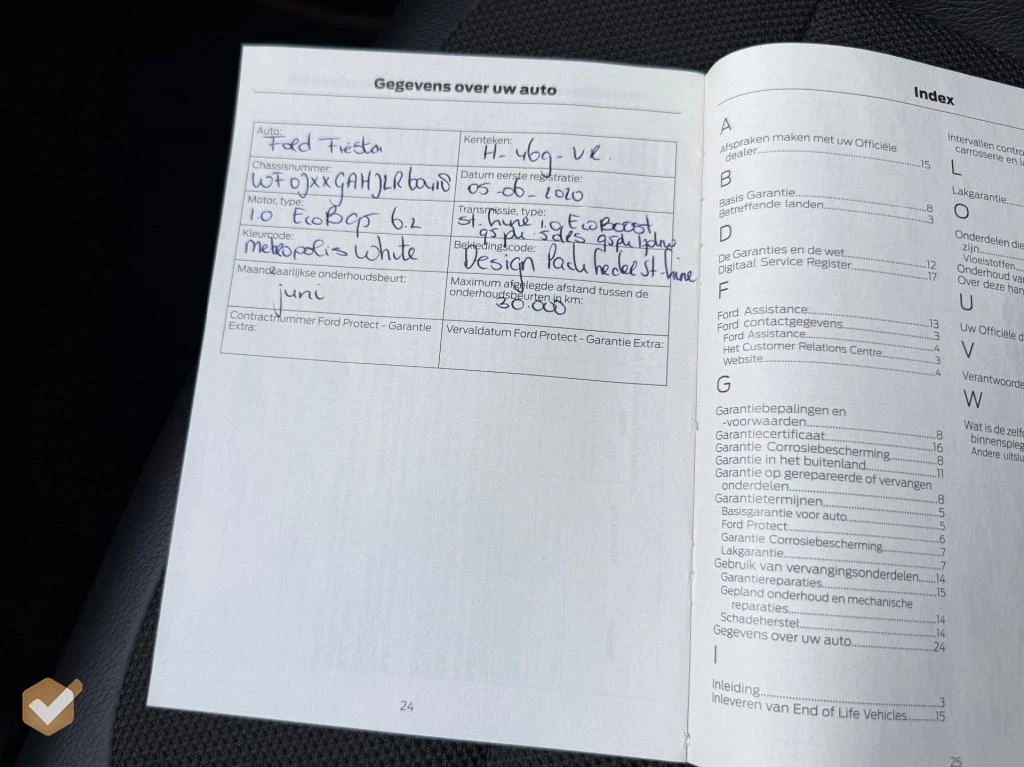 Gegevens over uw auto
Auto:
Ford Fiesta
Kenteken:
H-469-VR.
Chassisnummer:
Datum eerste registratie:
05-06-2020
Motor, type:
1.0 EcoB 6.2
Transmissie, type:
st. line 1.0 EcoBoost
5 drs
Kleurcode:
Metropolis White
Bekledingscode:
Design Pack st-line
Maandjaarlijkse onderhoudsbeurt:
juni
Maximum afgelegde afstand tussen de
onderhoudsbeurten in km:
30.000
Contractnummer Ford Protect - Garantie
Extra:
Vervaldatum Ford Protect - Garantie Extra:
24
Index
A
Afspraken maken met uw Officiële
dealer...............15
B
Basis Garantie...............8
Betreffende landen...............3
D
De Garanties en de wet...............12
Digitaal Service Register...............17
F
Ford Assistance...............13
Ford contactgegevens...............3
Ford Assistance...............4
Het Customer Relations Centre...............3
Website...............4
G
Garantiebepalingen en
-voorwaarden...............8
Garantiecertificaat...............16
Garantie Corrosiebescherming...............8
Garantie in het buitenland...............11
Garantie op gerepareerde of vervangen
onderdelen...............8
Garantietermijnen...............5
Basisgarantie voor auto...............5
Ford Protect...............6
Garantie Corrosiebescherming...............7
Lakgarantie...............7
Gebruik van vervangingsonderdelen...............14
Garantiereparaties...............15
Gepland onderhoud en mechanische
reparaties...............14
Schadeherstel...............14
Gegevens over uw auto...............24
I
Inleiding...............3
Inleveren van End of Life Vehicles...............15
Intervallen contro
carrosserie en
L
Lakgarantie
O
Onderdelen die
zijn
Vloeistoffen
Onderhoud van
Over deze han
U
Uw Officiële d
V
Verantwoorde
W
Wat is de zelf
binnenspieg
Andere uitslu
25